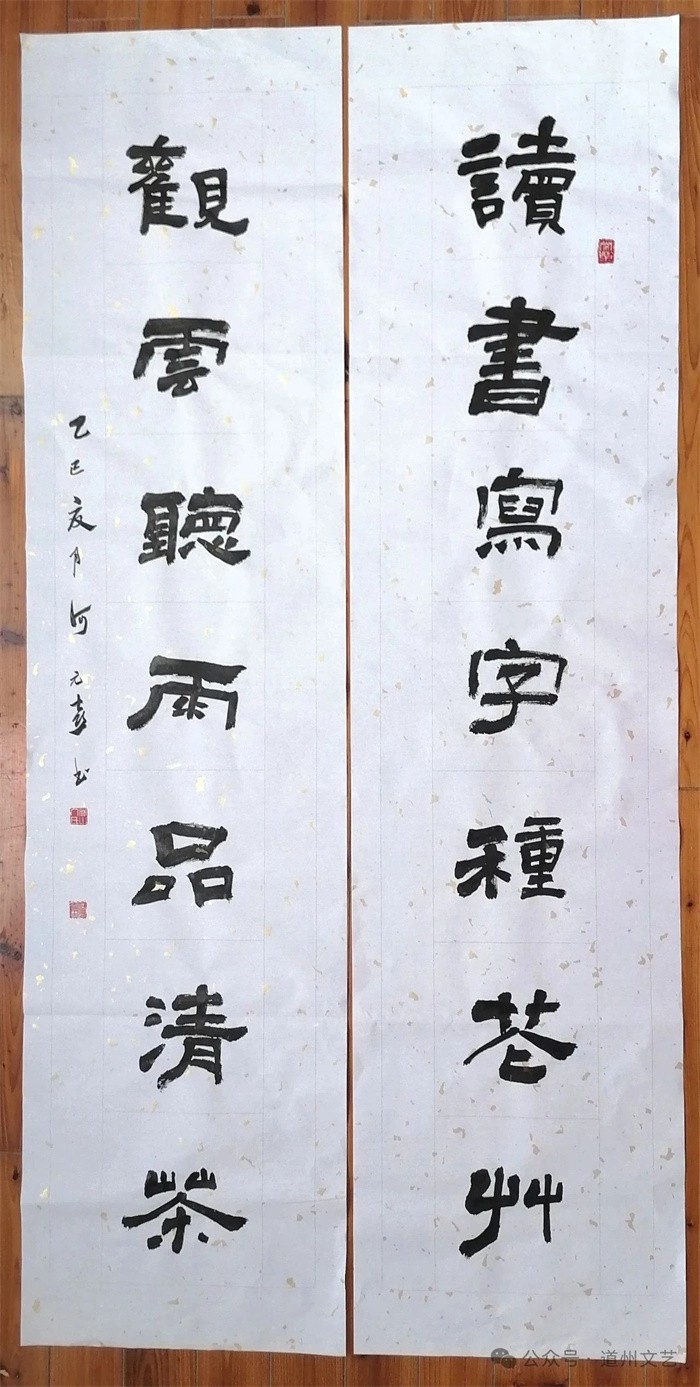 讀書寫字種花艸
觀雲聽雨品清茶
乙巳夏月何元喜书
公众号·道州文艺